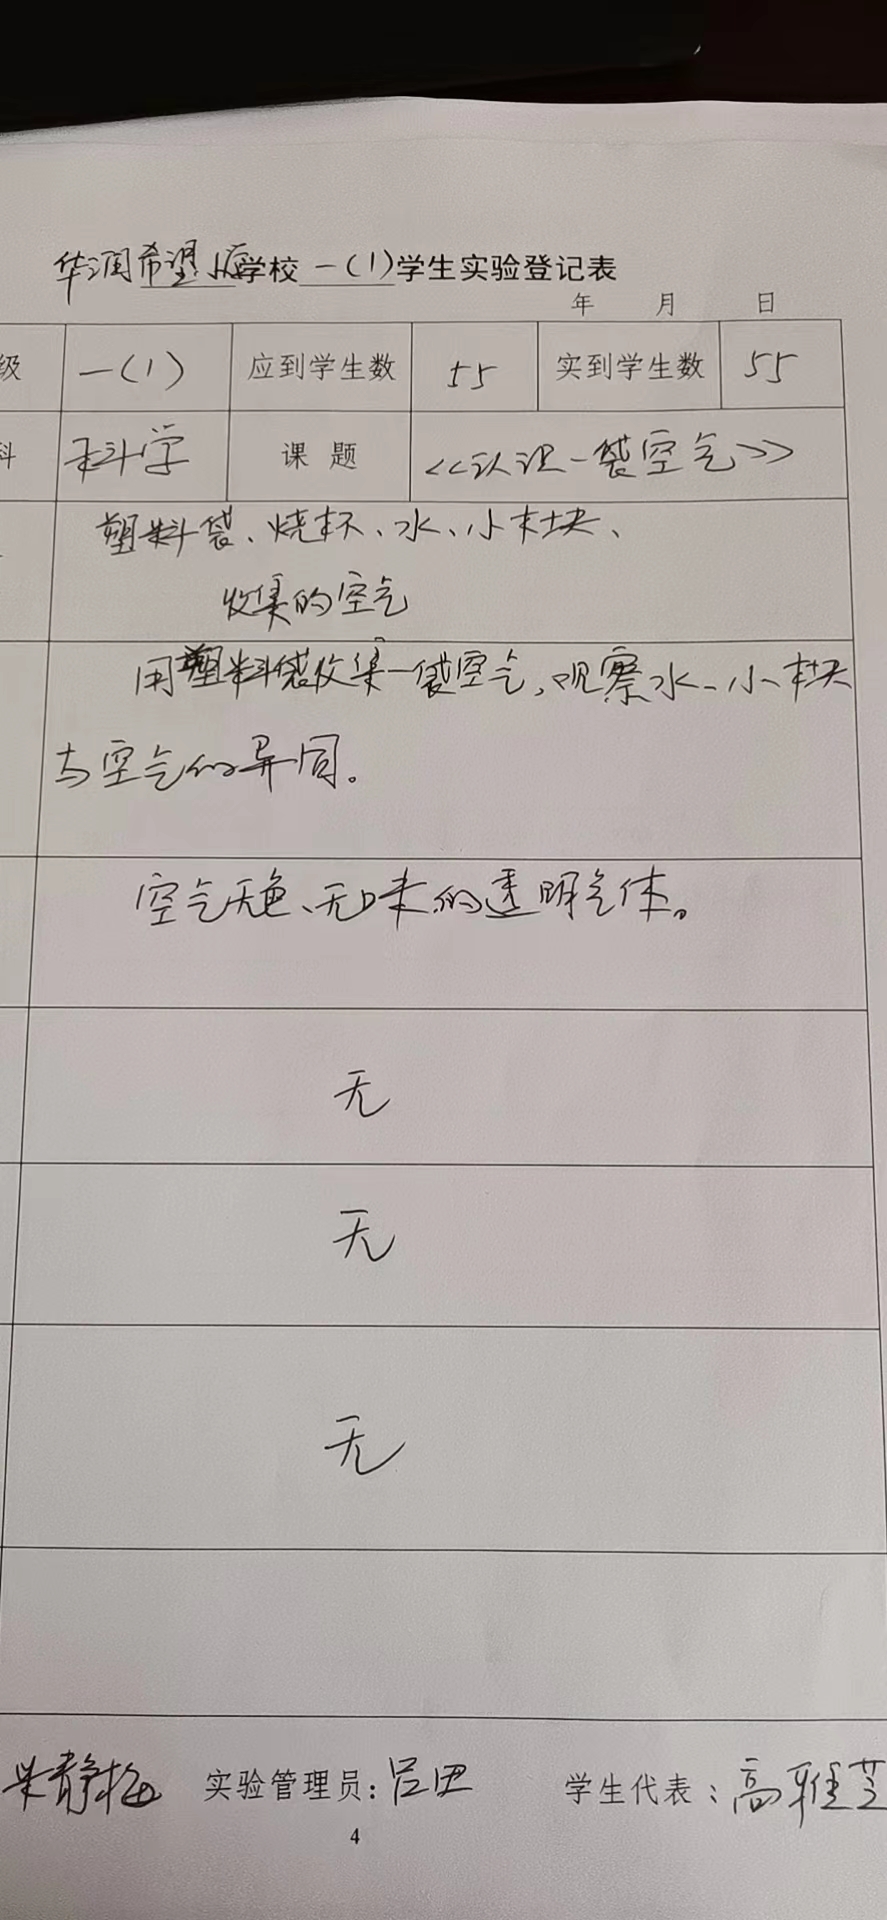 华润希望小学校一(1)学生实验登记表
年 月 日
级 一(1) 应到学生数 55 实到学生数 55
科 科学 课 题 <<认识一袋空气>>
塑料袋、烧杯、水、小木块、
收集的空气
用塑料袋收集一袋空气,观察水、小木块
与空气的异同。
空气无色、无味的透明气体。
无
无
无
静梅 实验管理员:吕田 学生代表:高雅芝
4